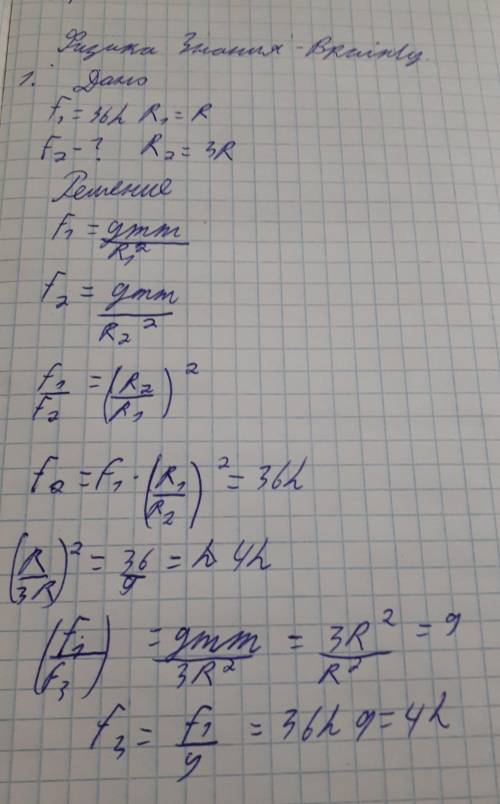 Физика Знания - Brainly.
1. Дано
F₁ = 36h R₁ = R
F₂ - ? R₂ = 3R
Решение
F₁ = gmm/R₁²
F₂ = gmm/R₂²
f₁/F₂ = (R₂/R₁)²
F₂ = F₁ · (R₁/R₂)² = 36h
(R/3R)² = 36/9 = 4h
(f₁/f₃) = gmm/3R² = 3R²/R² = 9
f₃ = f₁/9 = 36h 9 = 4h